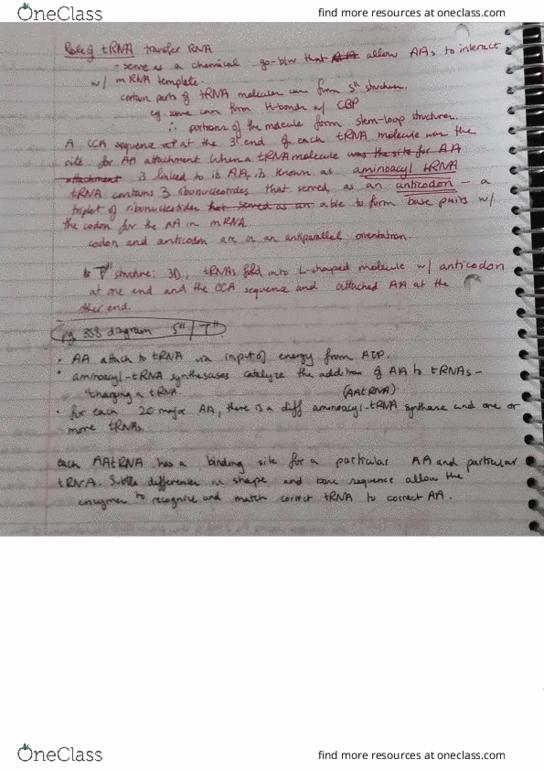 OneClass
find more resources at oneclass.com
Role of tRNA transfer RNA
- serve as a chemical go-btw that AA allow AAs to interact
w/ mRNA template.
certain parts of tRNA molecules can form 5" structures.
eg. some can form H-bonds w/ CBP
∴ portions of the molecule form stem-loop structures.
A CCA sequence at the 3' end of each tRNA molecule was the
site for AA attachment when a tRNA molecule was the site for AA
attachment is linked to is AA, is known as aminoacyl tRNA
tRNA contains 3 ribonucleotides that served as an anticodon - a
triplet of ribonucleotides that served as an able to form base pairs w/
the codon for the AA in mRNA
codon and anticodon are in an antiparallel orientation.
structure: 3D, tRNAs fold into L-shaped molecule w/ anticodon
at one end and the CCA sequence and attached AA at the
other end.
pg 358 diagram 5" / T"
• AA attach to tRNA via input of energy from ATP.
• aminoacyl-tRNA synthesases catalyze the addition of AA to tRNAs -
"charging a tRNA" (AAtRNA)
• for each 20 major AA, there is a diff aminoacyl-tRNA synthase and one or
more tRNAs.
each AAtRNA has a binding site for a particular AA and particular
tRNA. Subtle differences in shape and base sequence allow the
enzymes to recognise and match correct tRNA to correct AA.
OneClass
find more resources at oneclass.com